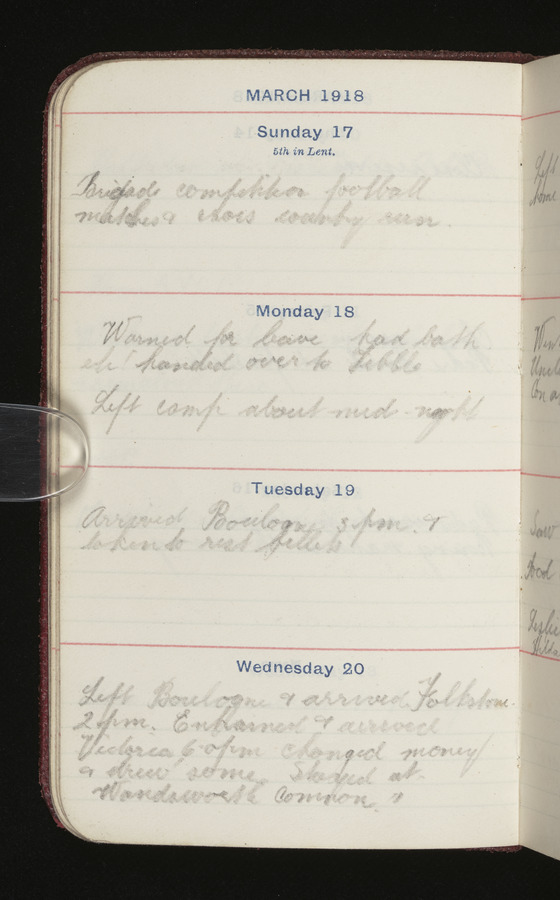 MARCH 1918
Sunday 17
5th in Lent.
Brigade competition football
matches & cross country run.
Monday 18
Warned for leave had bath
etc! handed over to
Left camp about mid-night
Tuesday 19
Arrived Boulogne 3 pm. &
taken to rest billets
Wednesday 20
Left Boulogne & arrived Folkstone
2 pm. Entrained & arrived
Victoria 6 pm changed money
& drew some. Stayed at
Wandsworth Common.
Left
home
Saw
food
Leslie
Hilda